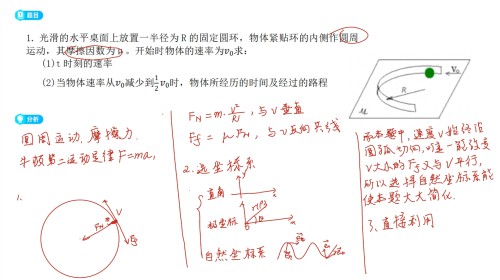 题目
1. 光滑的水平桌面上放置一半径为 R 的固定圆环，物体紧贴环的内侧作圆周
运动，其摩擦因数为μ 。开始时物体的速率为v₀求：
(1) t 时刻的速率
(2)当物体速率从v₀减少到½v₀时，物体所经历的时间及经过的路程
v₀
R
μ
分析
圆周运动、摩擦力、
牛顿第二运动定律 F=ma,
1.
V
F_N
F_f
F_N = m·V²/R , 与V垂直
F_f = μF_N , 与V反向共线
2. 选坐标系
直角
y
x
极坐标
θ
自然坐标系
而本题中，速度V始终沿
圆弧切向，唯一能改变
V大小的F_f又与V平行，
所以选择自然坐标系能
使本题大大简化.
3、直接利用